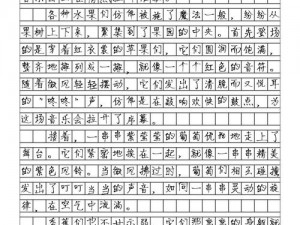 各种水果们仿佛被施了魔法一般，纷纷从
果树上下来，聚集到了果园的中央。首先登场
的是穿着红衣裳的苹果们，它们圆润而饱满，
整齐地排列成一排，就像一个个红色的音符。
随着微风轻轻摆动，它们发出了清脆而又悦耳
的“咚咚”声，仿佛在敲响欢快的鼓点，为
这场音乐会拉开了序幕。
接着，一串串紫莹莹的葡萄优雅地走上了
舞台。它们紧密地挨在一起，就像一串串精美
的紫色风铃。当微风吹过，葡萄们相互碰撞
发出了叮叮当当的声音，如同一串串灵动的旋
律，在空气中流淌。
香蕉们也不甘示弱，它们